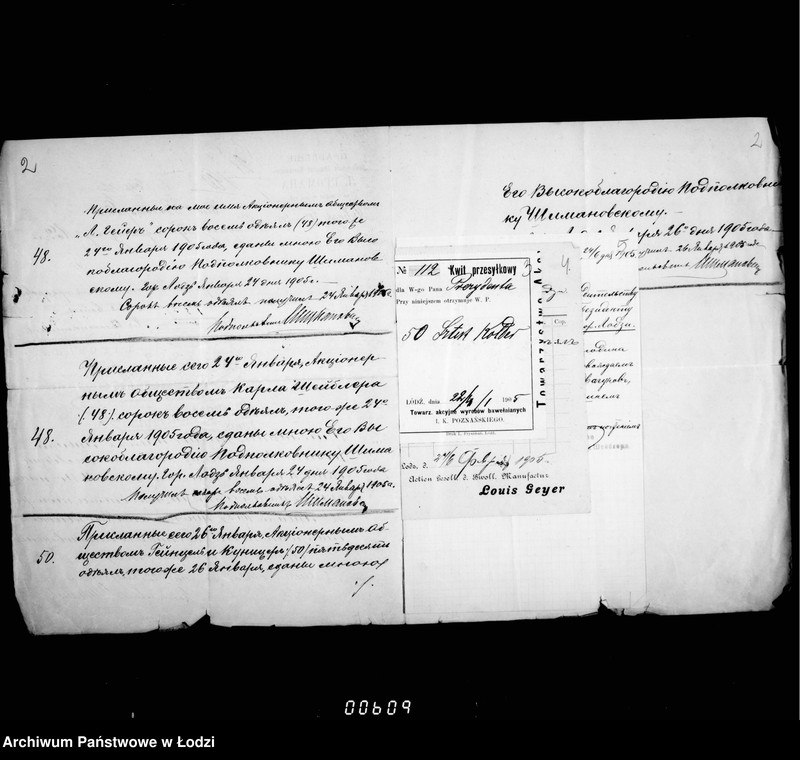 2
Присланныя на мое имя Акціонернымъ обществомъ
„Л. Гейеръ" сорокъ восемь одѣялъ (48) того же
48.
24го Января 1905 года, сданы мною Его Высо
коблагородію Подполковнику Шиманов-
скому. Гор. Лодзь Января 24 дня 1905 г.
Сорокъ восемь одѣялъ получилъ 24 Января 1905г.
Подполковникъ Шимановскій
Присланные сего 24го Января, Акціонер-
нымъ обществомъ Карла Шейблера
(48) сорокъ восемь одѣялъ, того же 24го
48.
Января 1905 года, сданы мною Его Вы
сокоблагородію Подполковнику Шима
новскому. Гор. Лодзь Января 24 дня 1905 года
Получилъ восемь одѣялъ 24 Января 1905г.
Подполковникъ Шимановскій
Присланные сего 26го Января, Акціонернымъ об
ществомъ Гейнцель и Куницеръ (50) пятьдесятъ
50.
одѣялъ, того же 26 Января, сданы мною
./.
2
Его Высокоблагородію Подполковни
ку Шимановскому.
ря 26го дня 1905 года
26 Января 1905
Шимановскій
№ 112 Kwit przesyłkowy 3
dla W-ego Pana Prezydenta
Przy niniejszem otrzymuje W. P.
50 Sztuk Kołder
ŁÓDŹ, dnia 22/I 1905
Towarz. akcyjne wyrobów bawełnianych
I. K. POZNAŃSKIEGO.
Towarzystwo Akc
4
Гор. Лодзи.
Lodz, d. 1905.
Action Gesell. d. Bwoll. Manufactur
Louis Geyer
00609
Archiwum Państwowe w Łodzi